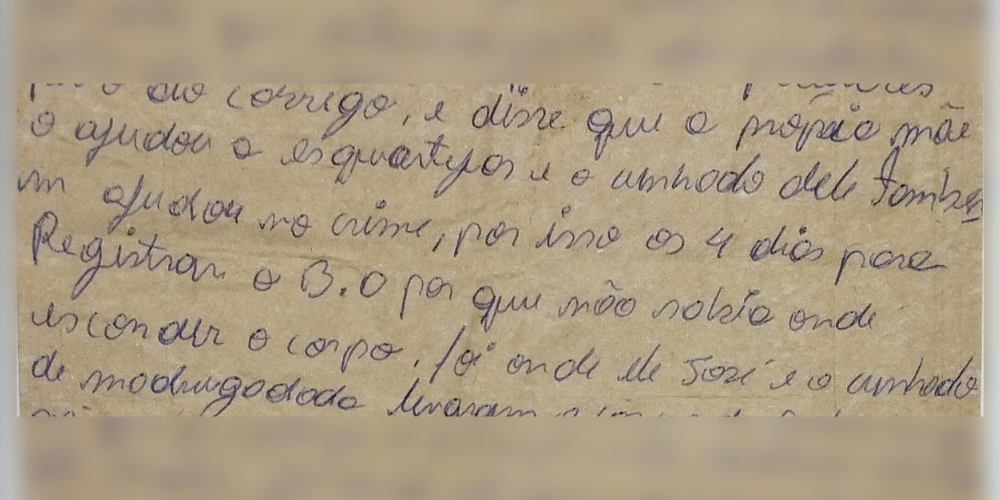 do corrego, e disse que a própria mãe
o ajudou a esquartejar e o cunhado dele també
m ajudou no crime, por isso os 4 dias para
Registrar o B.O por que não sabia onde
esconder o corpo. Foi onde ele José e o cunhado
de madrugadada levaram o